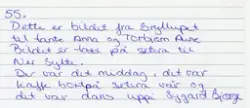 55.
Dette er bildet fra Bryllupet
til tante Anna og Torbjørn Aune
Bildet er tatt på setra til
Der var det middag, det var
kaffe bortpå setra vår og
det var dans uppi Bjørge